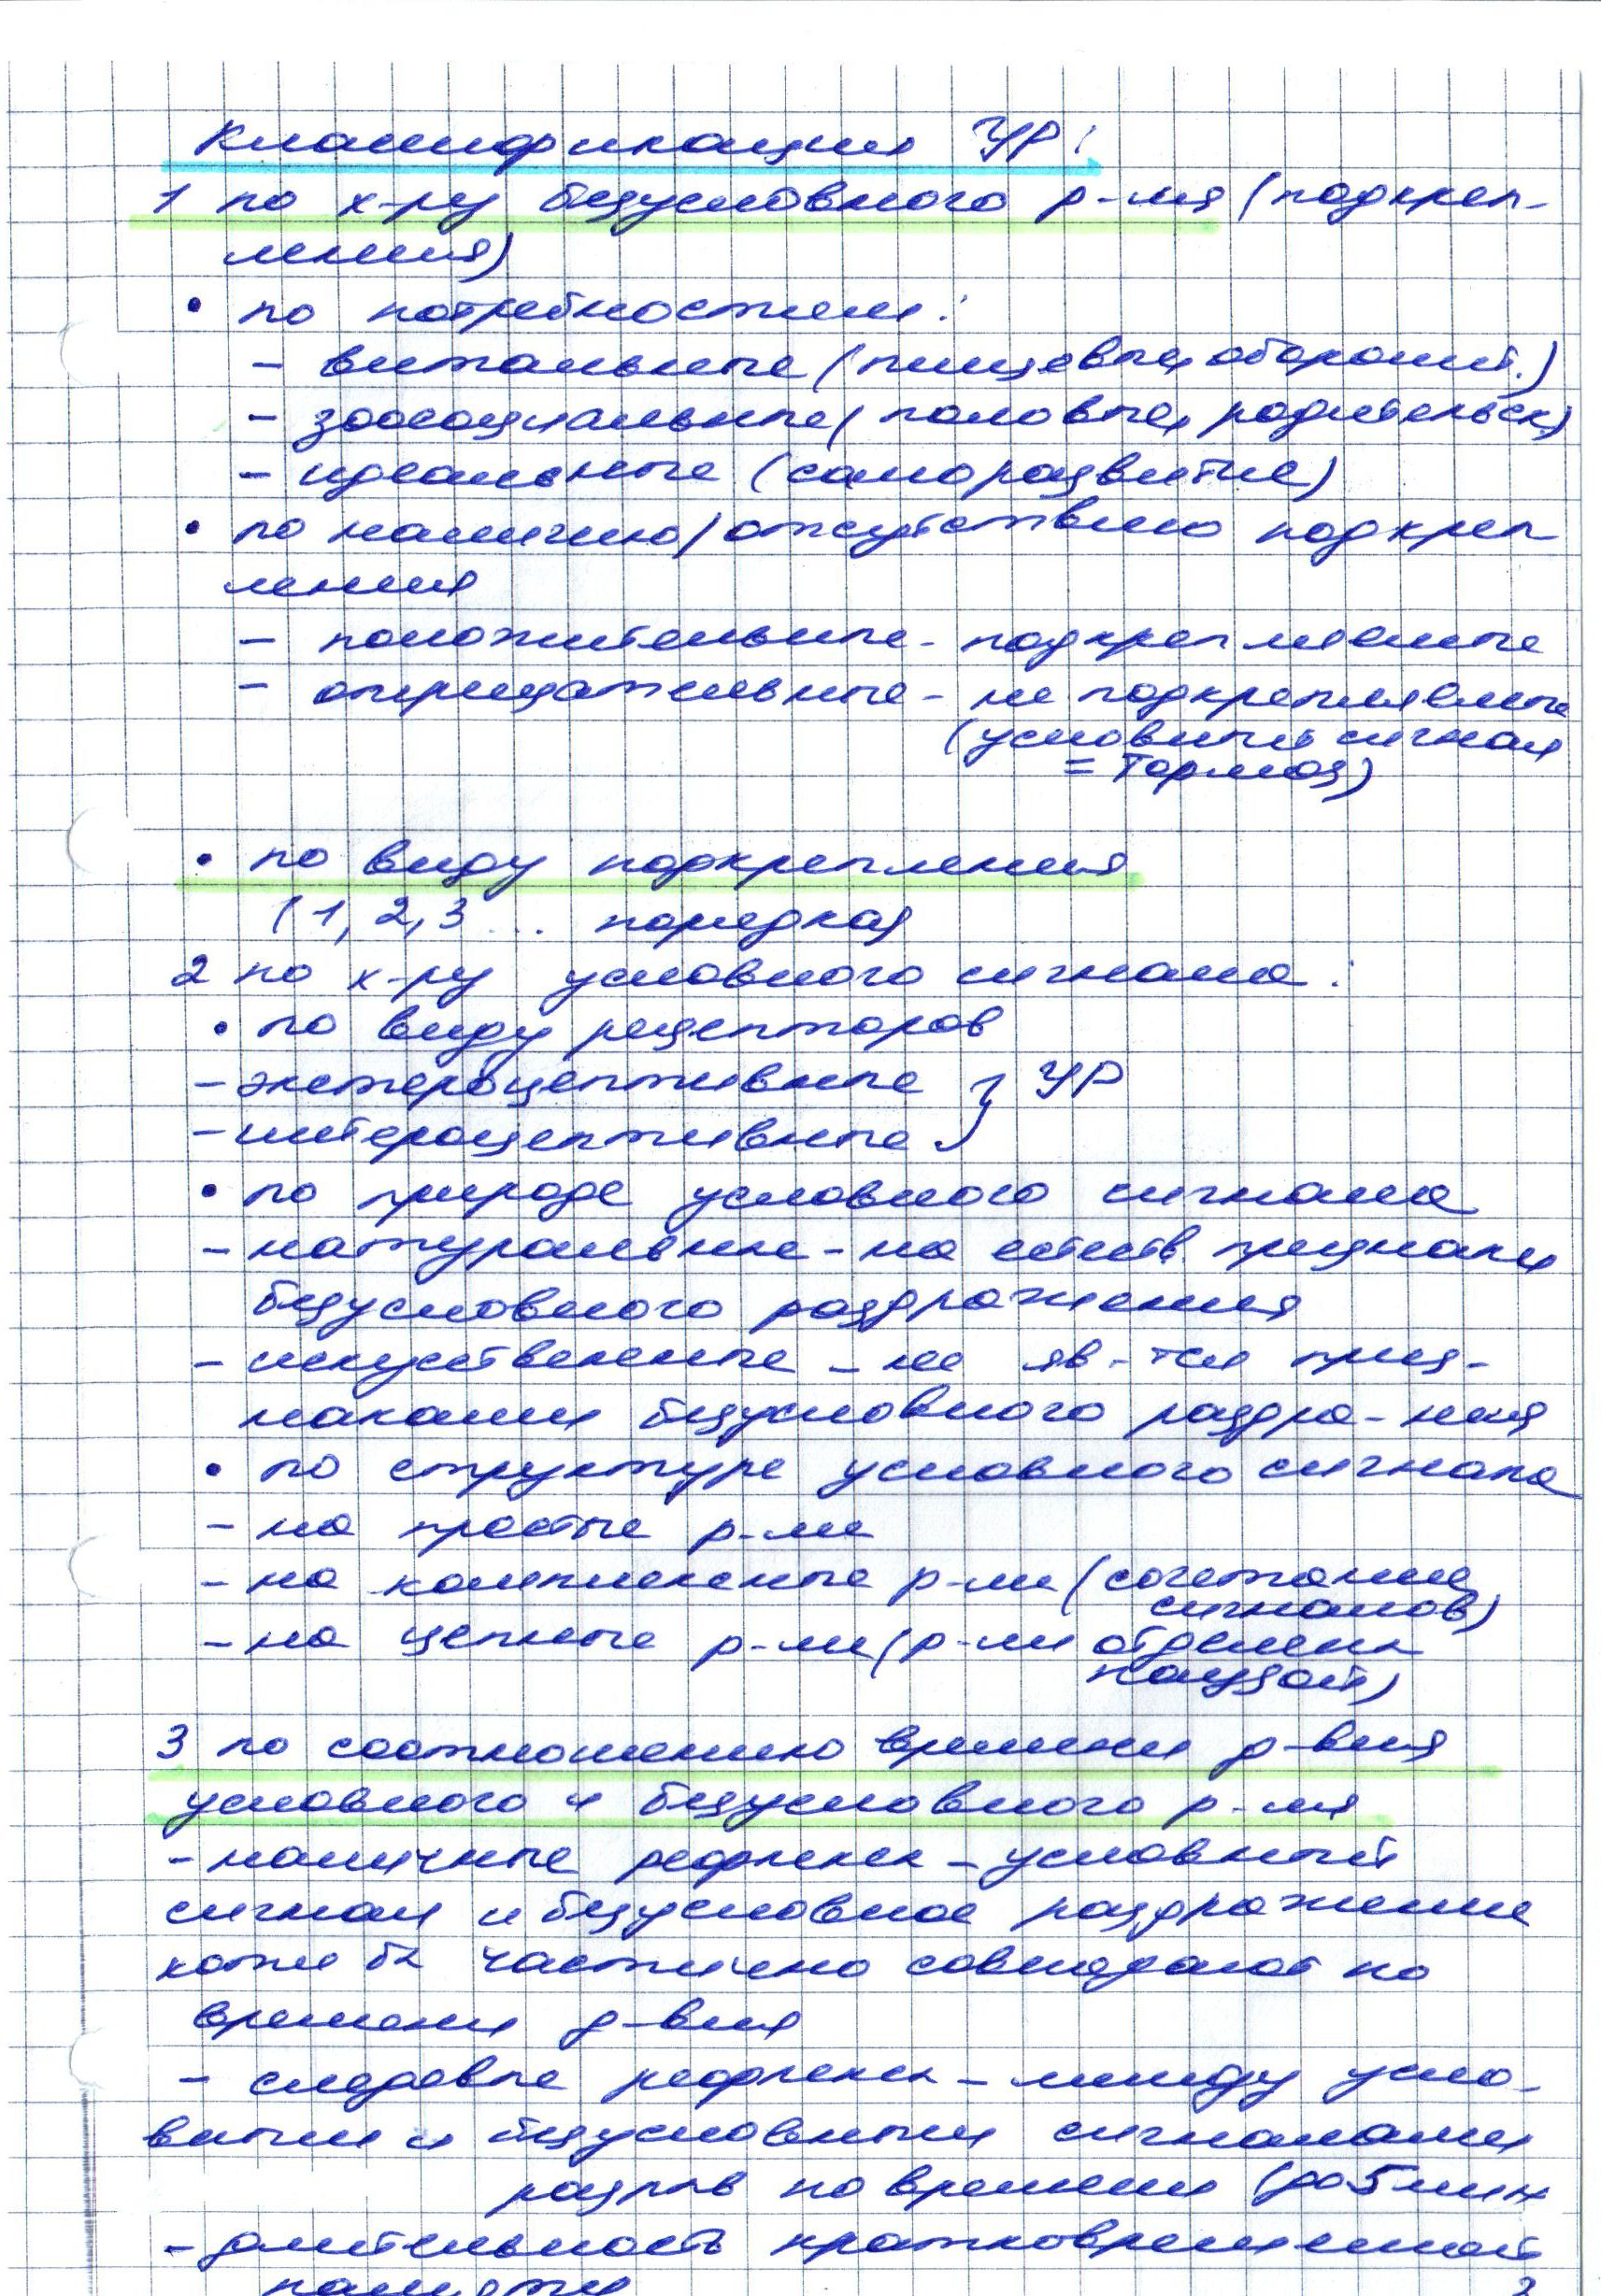 Классификация УР:
1 по х-ру безусловного р-ля (подкреп-
ления)
• по потребностям:
- витальные (пищевые, оборонит.)
- зоосоциальные (половые, родительск)
- идеальные (саморазвитие)
• по наличию/отсутствию подкреп
ления
- положительные - подкрепленные
- отрицательные - не подкрепляемые
(условный сигнал
= тормоз)
• по виду подкрепления
(1, 2, 3 ... порядка)
2 по х-ру условного сигнала:
• по виду рецепторов
- экстероцептивные } УР
- интероцептивные
• по природе условного сигнала
- натуральные - на естеств. признаки
безусловного раздражения
- искуственные - не яв-тся приз-
наками безусловного раздра-ния
• по структуре условного сигнала
- на простые р-ли
- на комплексные р-ли (сочетание
сигналов)
- на цепные р-ли (р-ли отделены
паузой)
3 по соотношению времени д-вия
условного и безусловного р-ля
- наличные рефлексы - условный
сигнал и безусловное раздражение
хотя бы частично совпадают по
времени д-вия
- следовые рефлексы - между усло-
вными и безусловными сигналами
разрыв по времени (до 5 мин
- длительность кратковременной
памяти